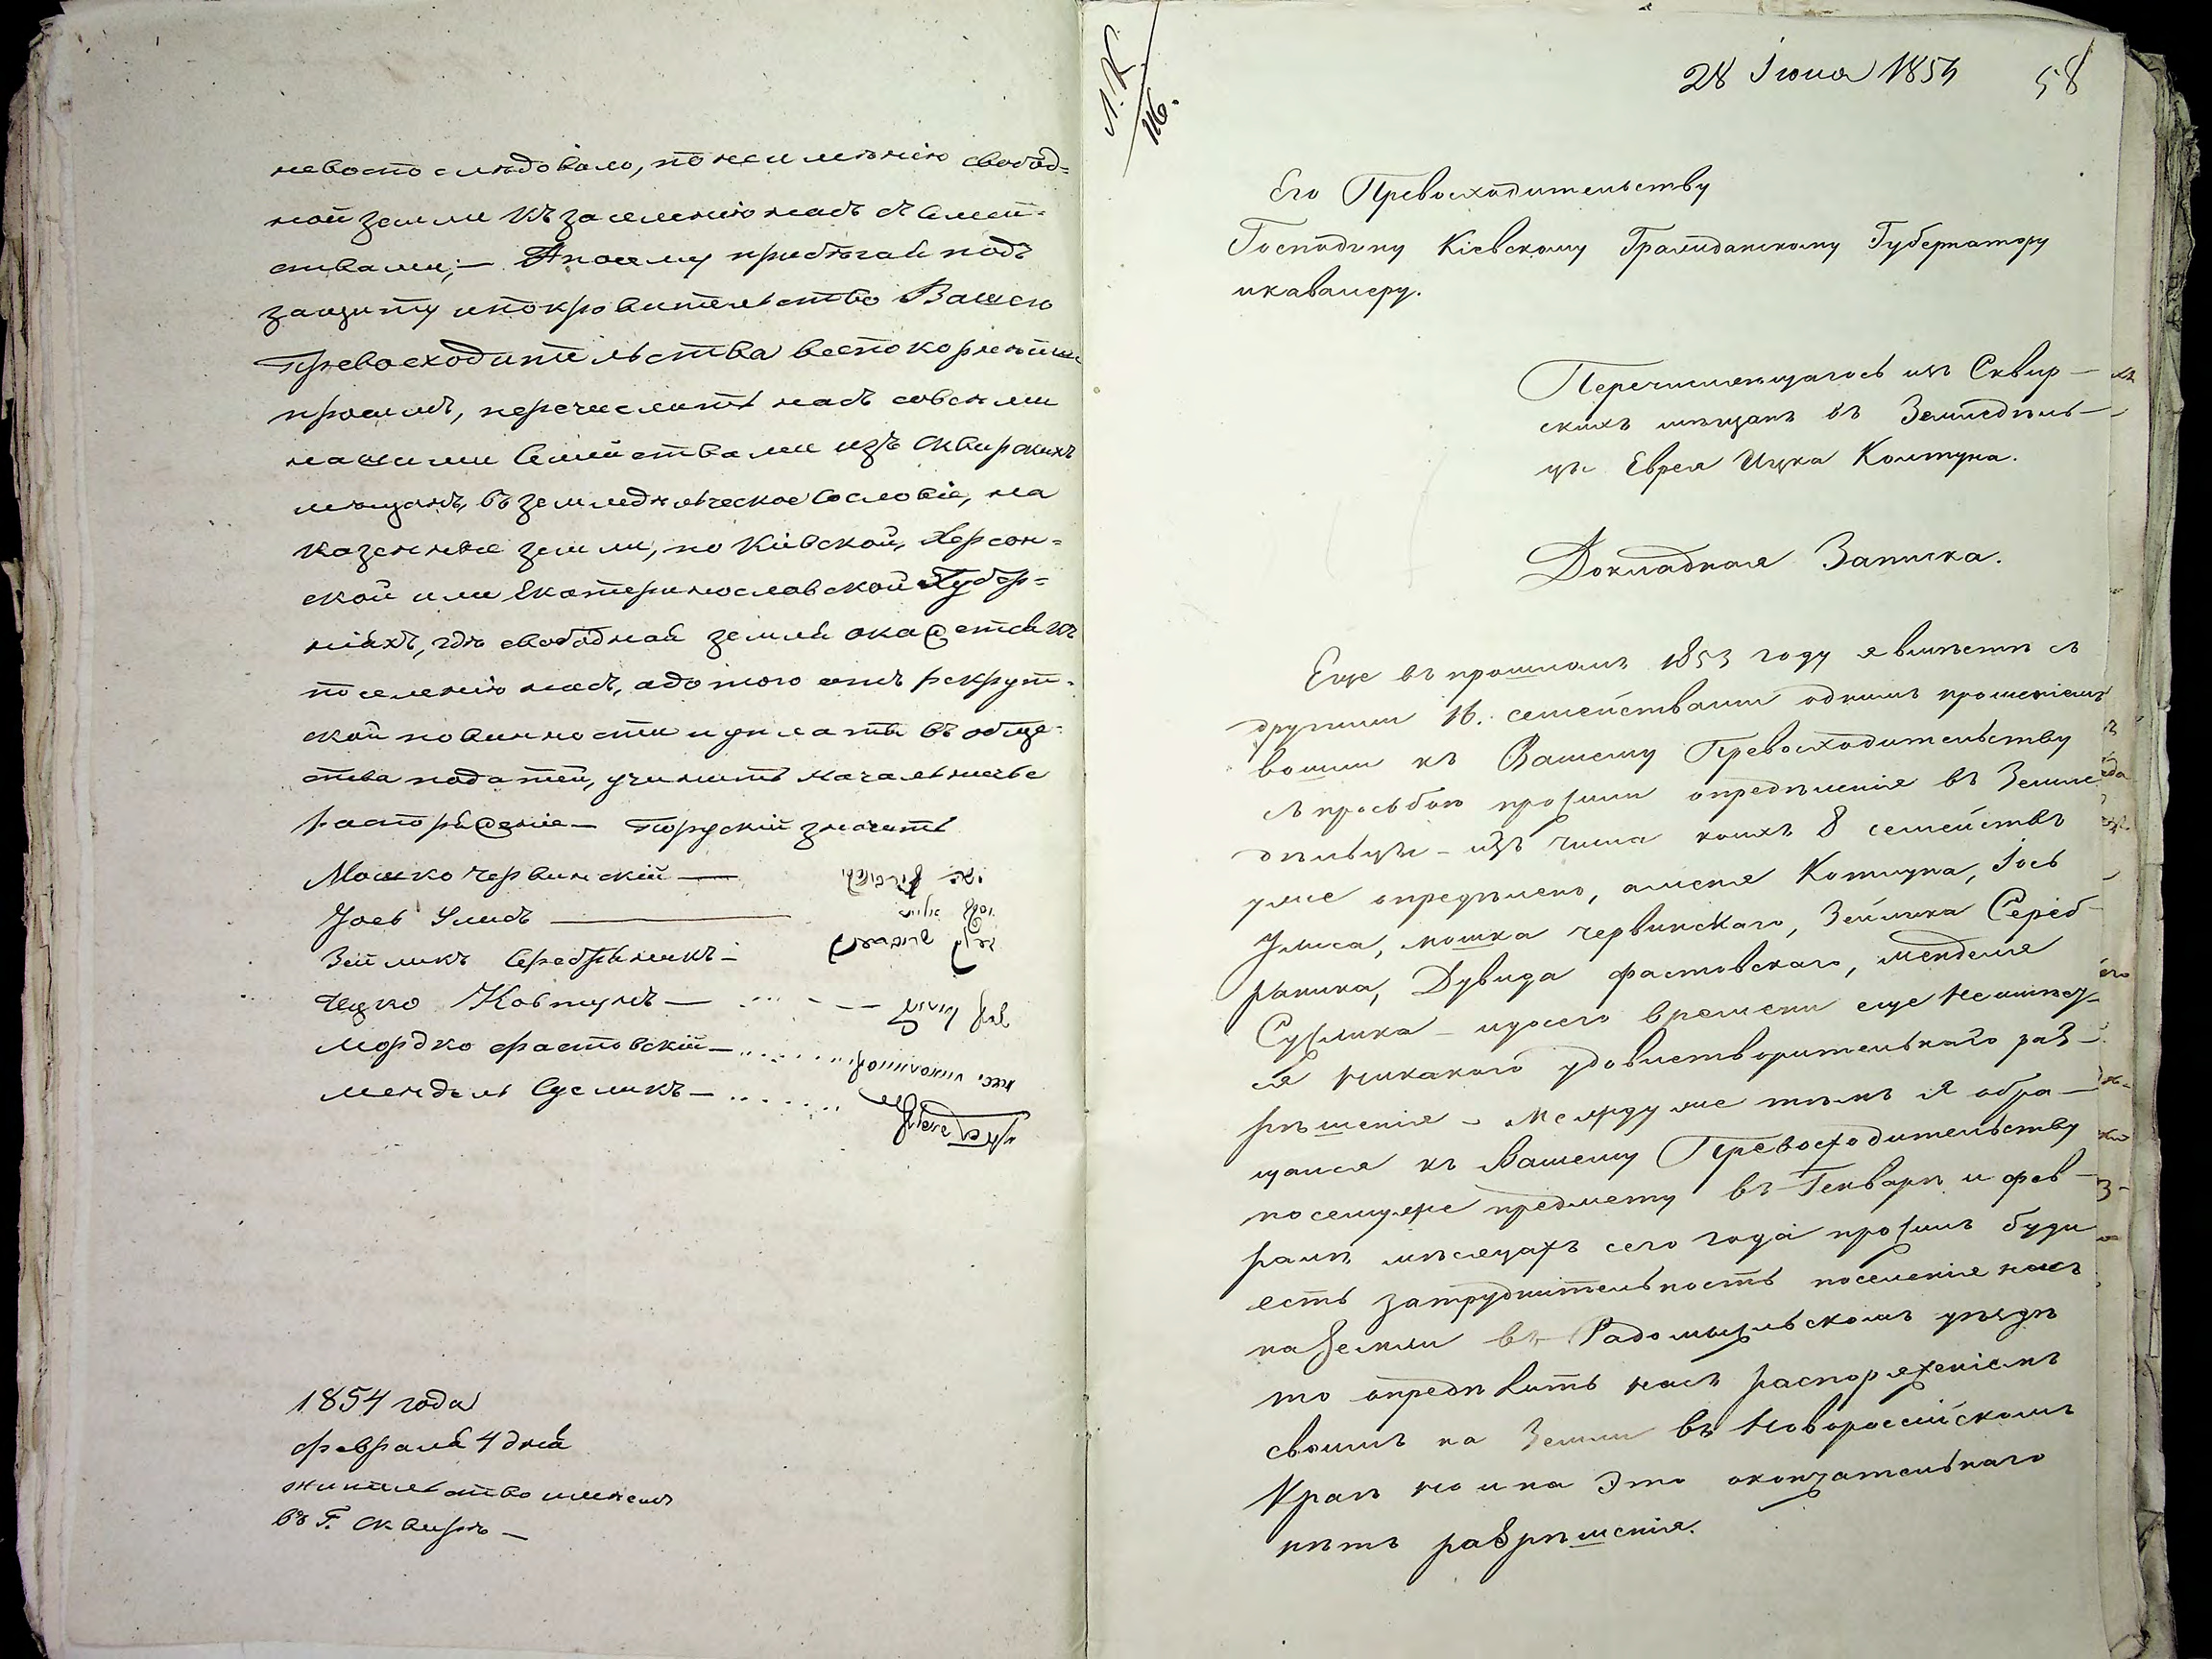 невосто следовало, по неимѣнію свобод=
ной земли къ заселенію насъ съ Семей-
ствами;— А посему прибѣгая подъ
защиту и покровительство Вашего
Превосходительства всепокорнѣйше
просимъ, перечислить насъ совсѣми
нашими Семействами изъ Сквирскихъ
мѣщанъ, въ земледѣльческое Сословіе, на
казенные земли, по Кіевской, Херсон=
ской или Екатеринославской Губер=
ніяхъ, где свободная земля окажется къ
поселенію насъ, а до того отъ рекрут-
ской повинности и уплаты въ обще-
ства податей, учинить начальничье
распоряженіе— По руский значитъ
Мошко Червинскій —
Іосъ Улисъ —
Зейликъ Серебряникъ —
Ицко Ковтунъ —
Мордко Фастовскій —
Мендель Сусликъ —
1854 года
февраля 4 дня
жительство имѣемъ
въ Г. Сквирѣ —
Л. К.
116.
28 Іюна 1854
58
Его Превосходительству
Господину Кіевскому Гражданскому Губернатору
и кавалеру.
Перечисляющагось изъ Сквир—
скихъ мѣщанъ въ Земледѣль—
цы Еврея Ицка Колтуна.
Докладная Записка.
Еще въ прошломъ 1853 году я вмѣстѣ съ
другими 16. семействами однимъ прошеніемъ
вошли къ Вашему Превосходительству
съ просьбою просили опредѣленія въ Земле
дѣльцы — изъ числа коихъ 8 семействъ
уже опредѣлено, а меня Колтуна, Іось
Улиса, мошка червинскаго, Зейлика Сереб—
раника, Дувида фастовскаго, менделя
Суслика — и до сего времени еще неимѣет—
ся никакого удовлетворительнаго раз—
рѣшенія — Между же тѣмъ я обра—
щался къ Вашему Превосходительству
по сему же предмету въ Генварѣ и фев—
ралѣ мѣсяцахъ сего года просилъ буди
есть затруднительность поселенія насъ
на Земли въ Радомыльскомъ уѣздѣ
то опредѣлить насъ распоряженіемъ
своимъ на Земли въ Новороссійскомъ
Краѣ но и на Это окончательнаго
нѣтъ разрѣшенія.